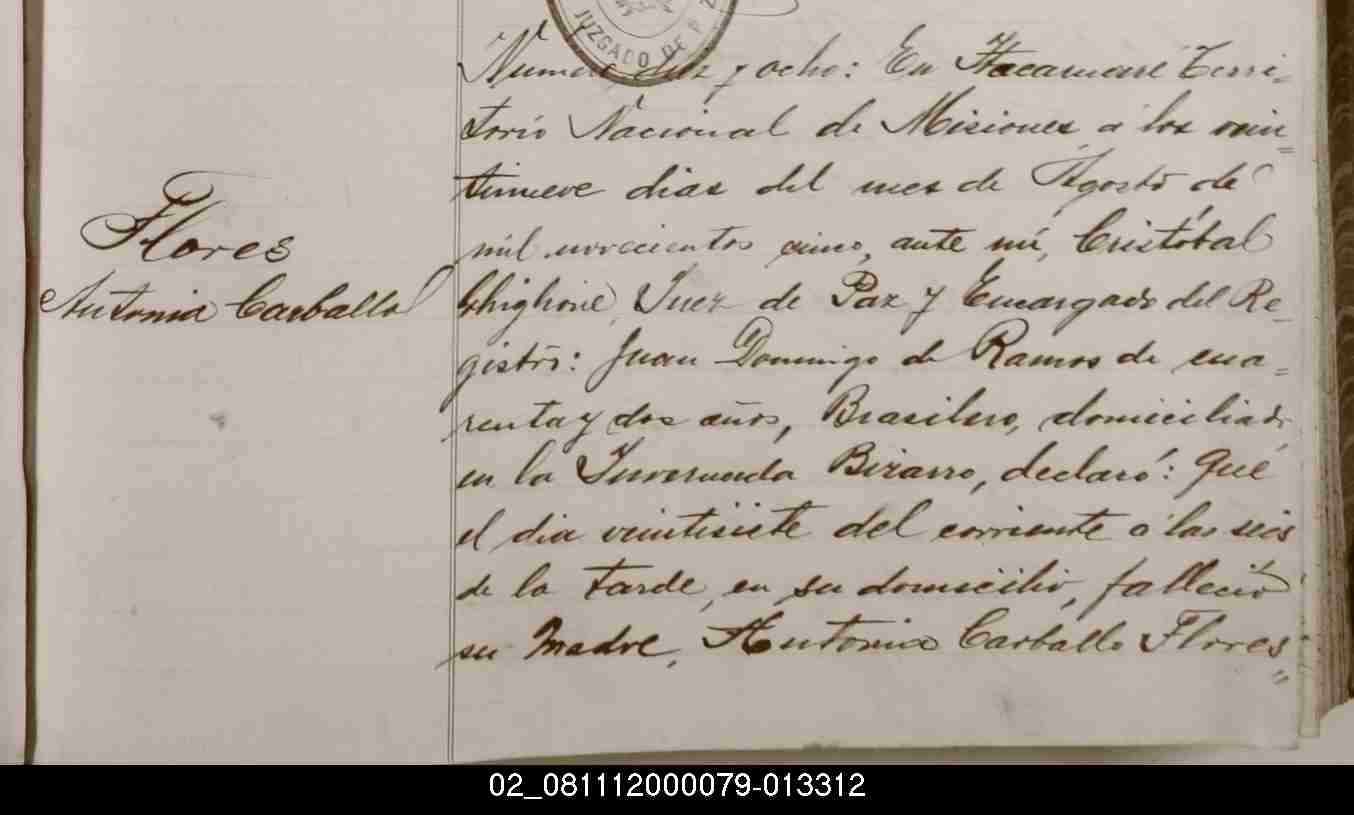 JUZGADO DE P. Z
Numero diez y ocho: En Itacaruaré Terri-
torio Nacional de Misiones a los vein-
tinueve dias del mes de Agosto de
mil novecientos cinco, ante mi, Cristóbal
Ghiglione, Juez de Paz y Encargado del Re-
gistro: Juan Domingo de Ramos de cua-
renta y dos años, Brasilero, domiciliado
en la Invernada Bizarro, declaró: Qué
el dia veintisiete del corriente a las seis
de la tarde, en su domicilio, falleció
su madre, Antonia Carballo Flores
Flores
Antonia Carballo
02_081112000079-013312